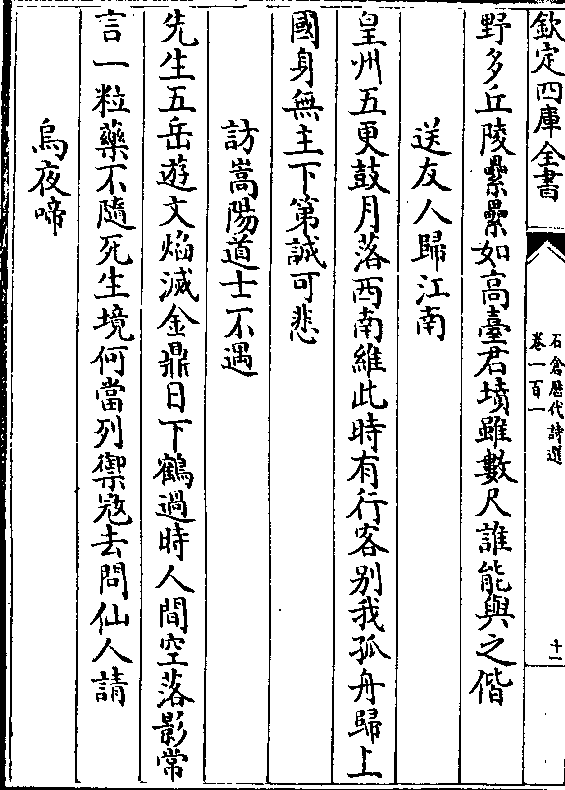 欽定四庫全書
石倉歷代詩選
卷一百一
十一
野多丘陵纍纍如高臺君墳雖數尺誰能與之偕
送友人歸江南
皇州五更鼓月落西南維此時有行客别我孤舟歸上
國身無主下第誠可悲
訪嵩陽道士不遇
先生五岳遊文焰滅金鼎日下鶴過時人間空落影常
言一粒藥不隨死生境何當列禦㓂去問仙人請
烏夜啼